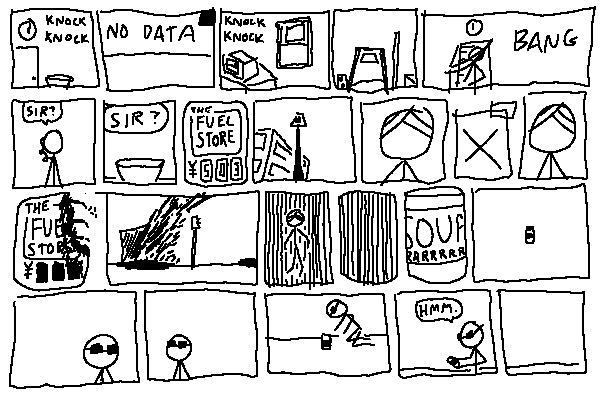 KNOCK
KNOCK
NO DATA
KNOCK
KNOCK
BANG
SIR?
SIR?
THE
FUEL
STORE
THE
FUE
STOR
¥
SOUP
RRRRRRR
HMM.